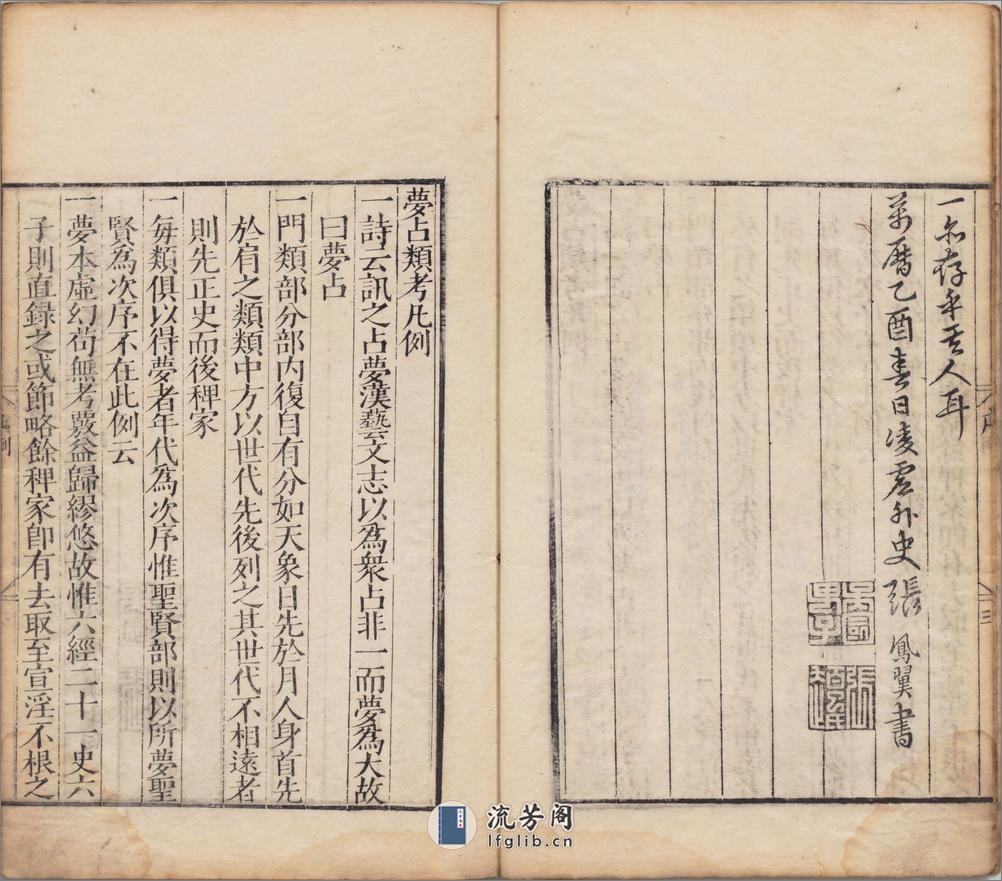 一亦存乎其人耳
萬曆乙酉春日凌虛外史張鳳翼書
夢占類考凡例
一詩云訊之占夢漢藝文志以爲衆占非一而夢爲大故
曰夢占
一門類部分部内復自有分如天象日先於月人身首先
於肩之類類中方以世代先後列之其世代不相遠者
則先正史而後稗家
一每類俱以得夢者年代爲次序惟聖賢部則以所夢聖
賢爲次序不在此例云
一夢本虛幻苟無考覈益歸繆悠故惟六經二十一史六
子則直錄之或節略餘稗家卽有去取至宣淫不根之
凡例
三
流芳阁
lfglib.cn